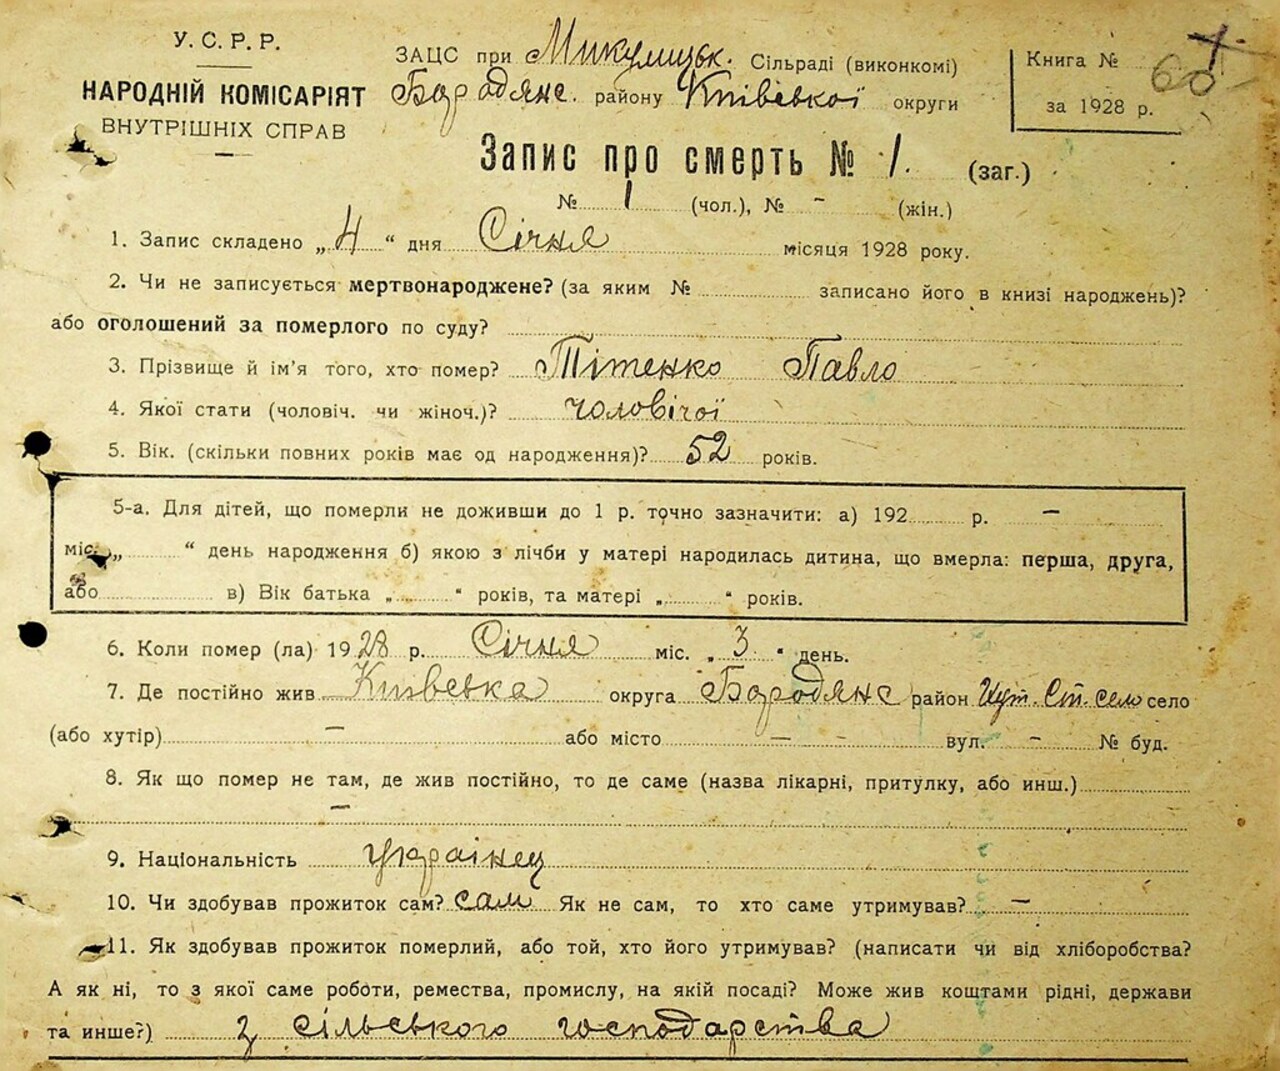 У. С. Р. Р.
НАРОДНІЙ КОМІСАРІЯТ
ВНУТРІШНІХ СПРАВ
ЗАЦС при Микулицьк. Сільраді (виконкомі)
Бородянс. району Київської округи
Книга №
60
за 1928 р.
Запис про смерть № 1. (заг.)
№ 1 (чол.), № – (жін.)
1. Запис складено „ 4 “ дня Січня місяця 1928 року.
2. Чи не записується мертвонароджене? (за яким № записано його в книзі народжень)?
або оголошений за померлого по суду?
3. Прізвище й ім'я того, хто помер? Тітенко Павло
4. Якої статі (чоловіч. чи жіноч.)? чоловічої
5. Вік. (скільки повних років має од народження)? 52 років.
5-а. Для дітей, що померли не доживши до 1 р. точно зазначити: а) 192 р. –
міс. „ “ день народження б) якою з лічби у матері народилась дитина, що вмерла: перша, друга,
або в) Вік батька „ “ років, та матері „ “ років.
6. Коли помер (ла) 1928 р. Січня міс. „ 3 “ день.
7. Де постійно жив Київська округа Бородянс район Ст. село село
(або хутір) – або місто – – вул. – № буд.
8. Як що помер не там, де жив постійно, то де саме (назва лікарні, притулку, або инш.)
–
9. Національність українец
10. Чи здобував прожиток сам? сам Як не сам, то хто саме утримував? –
11. Як здобував прожиток померлий, або той, хто його утримував? (написати чи від хліборобства?
А як ні, то з якої саме роботи, ремества, промислу, на якій посаді? Може жив коштами рідні, держави
та инше?) з сільського господарства